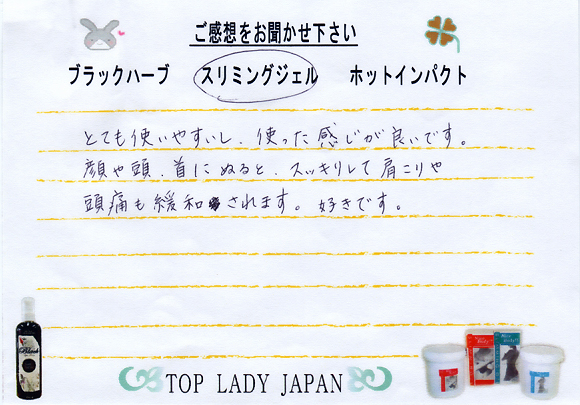 ご感想をお聞かせ下さい
ブラックハーブ スリミングジェル ホットインパクト
とても使いやすいし、使った感じが良いです。
顔や頭、首にぬると、スッキリして肩こりや
頭痛も緩和されます。好きです。
TOP LADY JAPAN